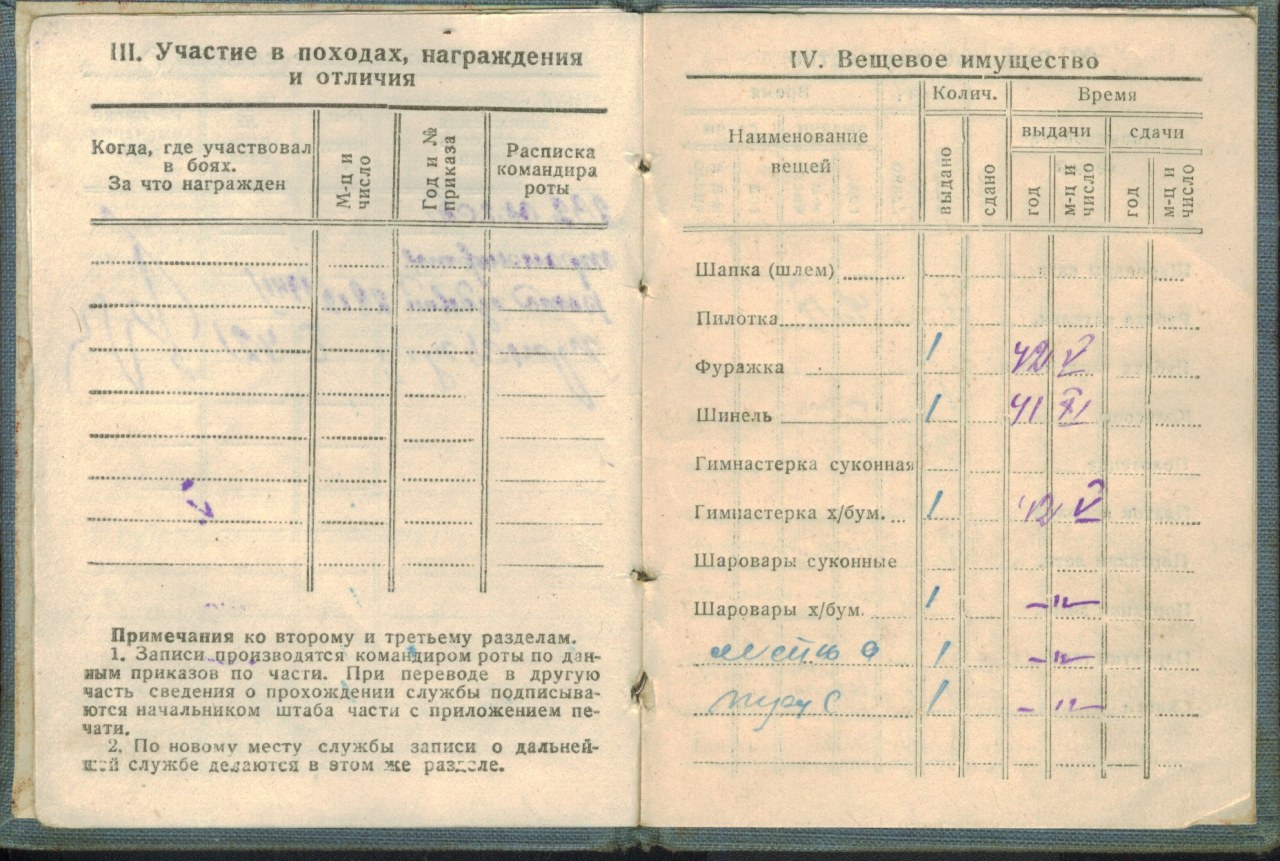 III. Участие в походах, награждения
и отличия
Когда, где участвовал
в боях.
За что награжден
М-ц и
число
Год и №
приказа
Расписка
командира
роты
Примечания ко второму и третьему разделам.
1. Записи производятся командиром роты по дан-
ным приказов по части. При переводе в другую
часть сведения о прохождении службы подписыва-
ются начальником штаба части с приложением пе-
чати.
2. По новому месту службы записи о дальней-
шей службе делаются в этом же разделе.
IV. Вещевое имущество
Наименование
вещей
Колич.
Время
выдано
сдано
выдачи
сдачи
год
м-ц и
число
год
м-ц и
число
Шапка (шлем)
Пилотка
Фуражка 1 42 V
Шинель 1 41 XI
Гимнастерка суконная
Гимнастерка х/бум. 1 42 V
Шаровары суконные
Шаровары х/бум. 1 —"—
1 —"—
1 —"—